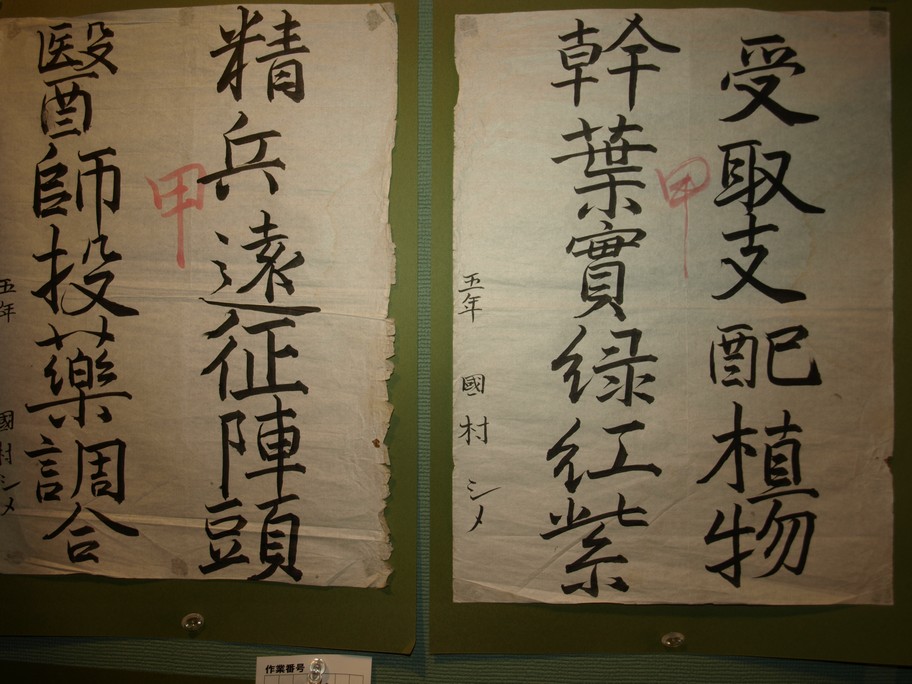 受取支配植物
幹葉實緑紅紫
甲
五年 國村シメ
精兵遠征陣頭
醫師投藥調合
甲
五年 國村シメ
作業番号